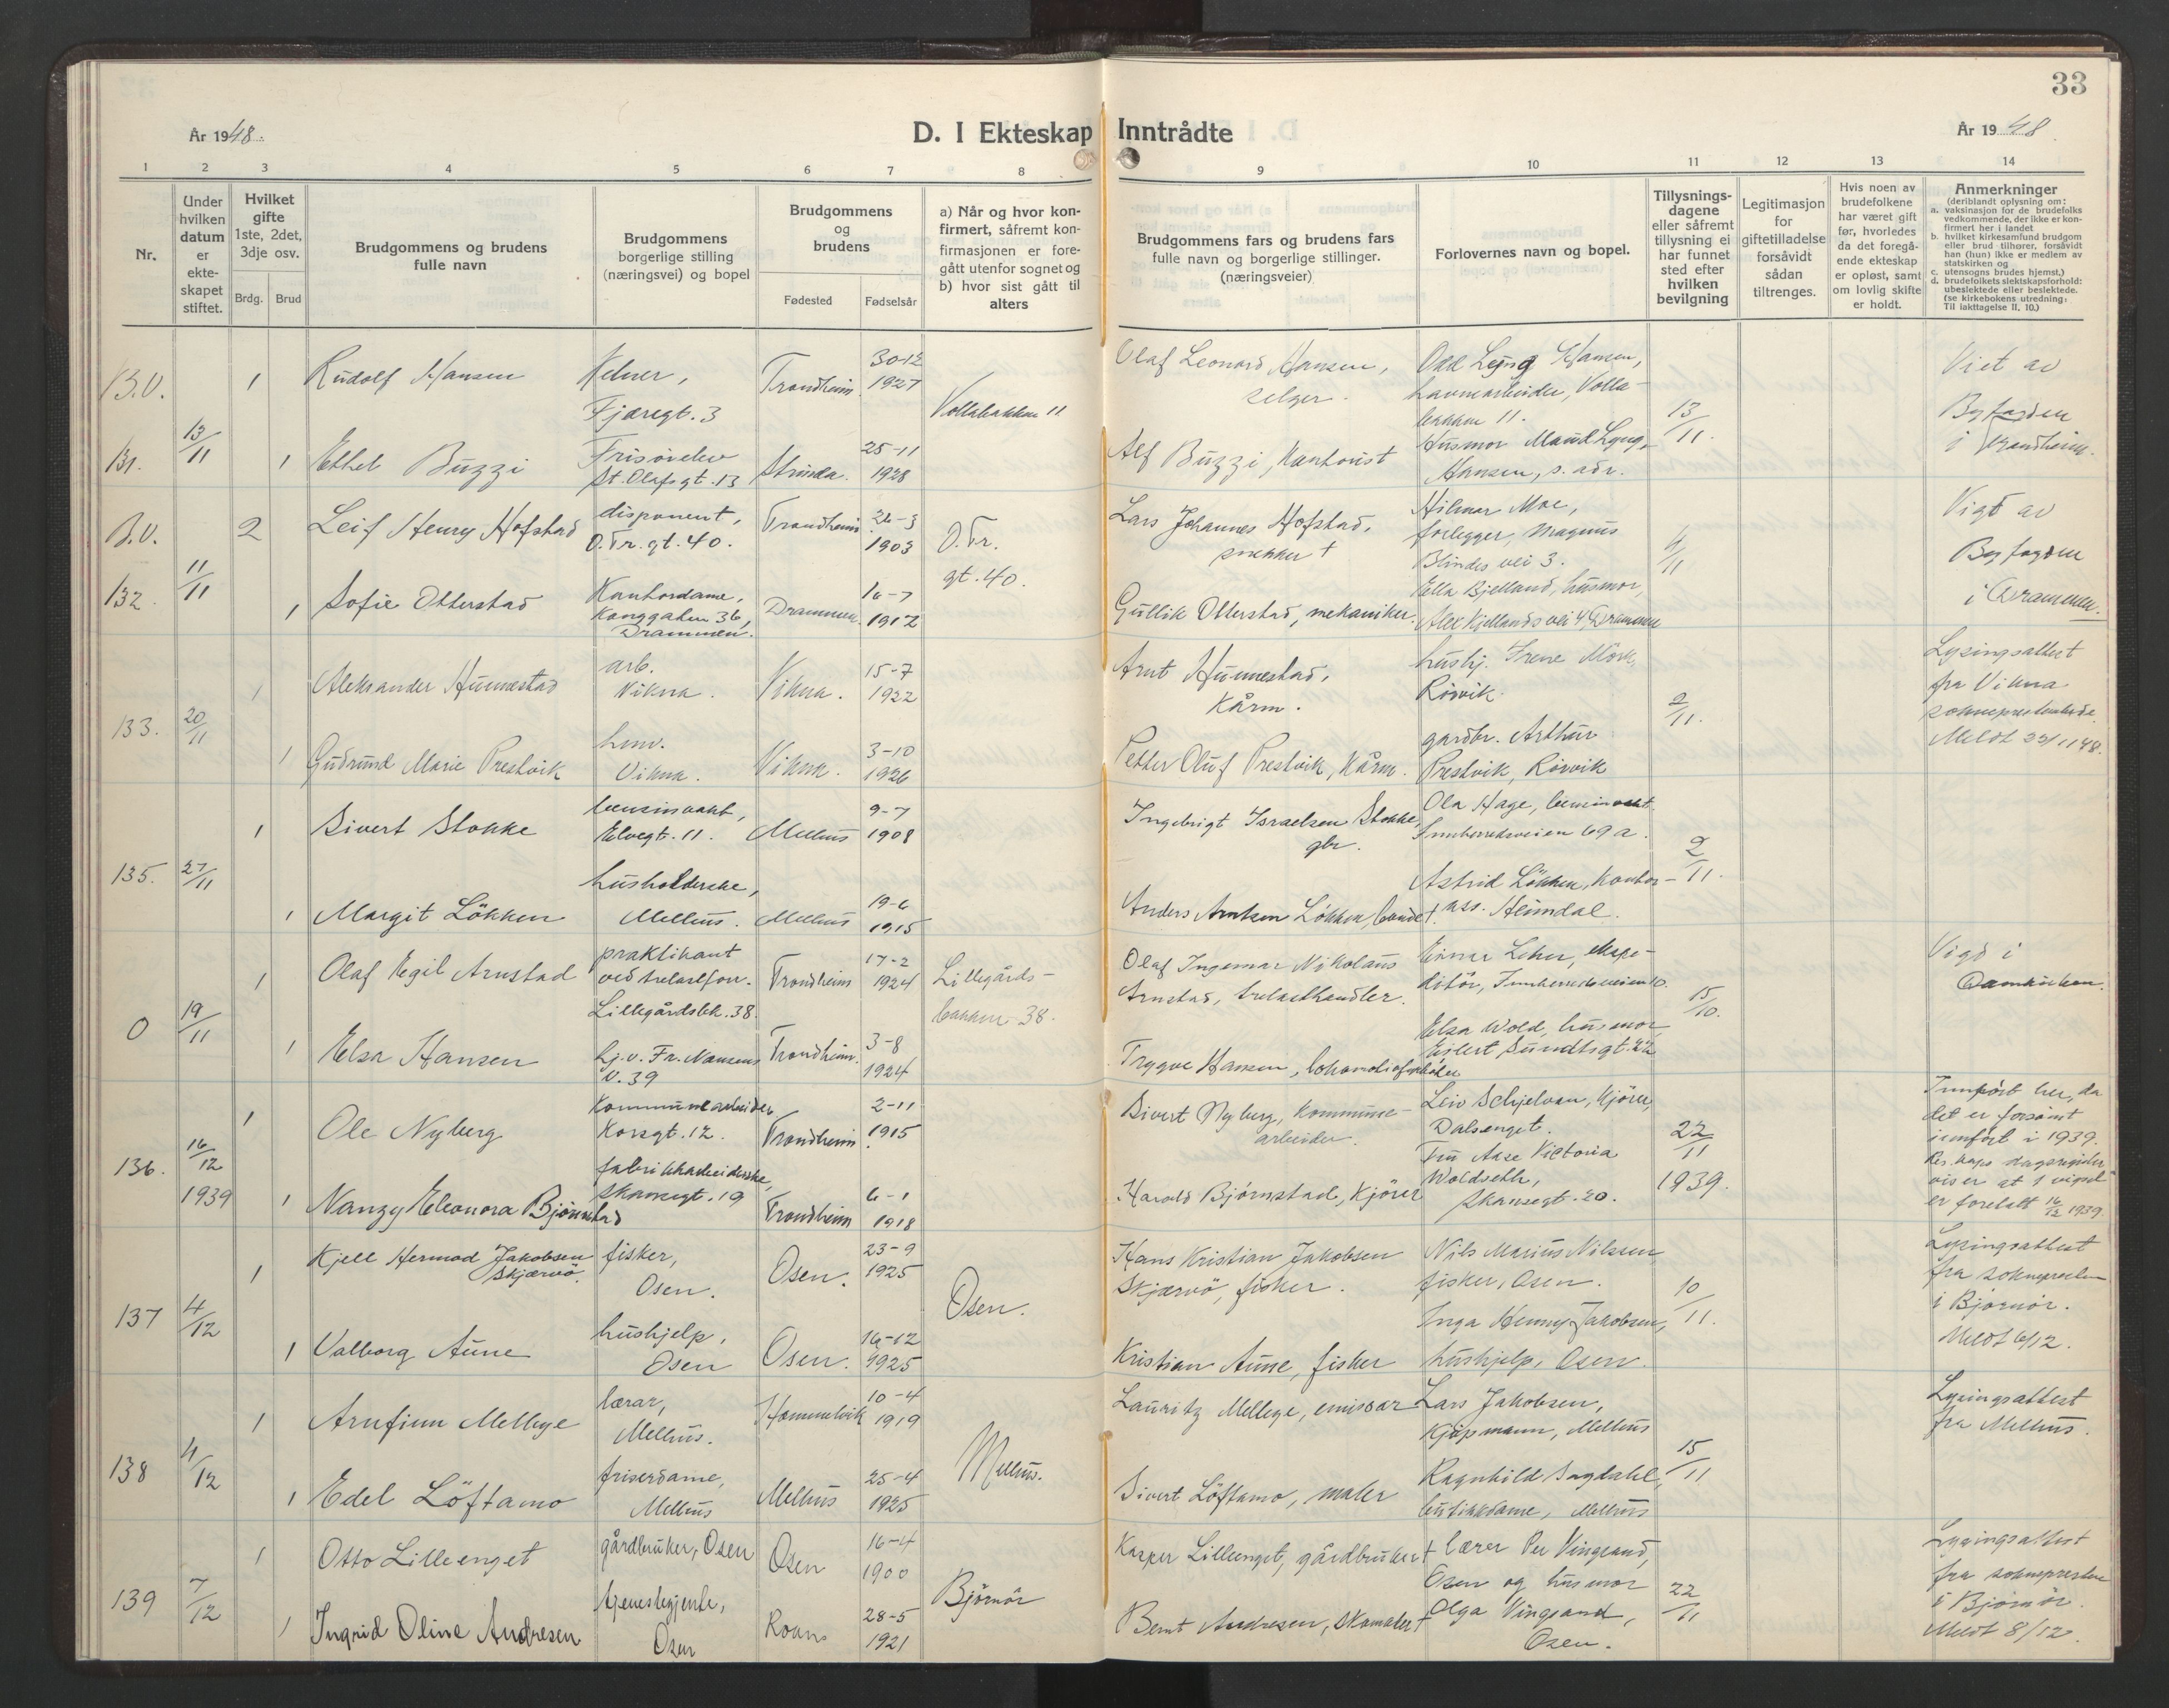 33
År 1948.
D. I Ekteskap Inntrådte
År 1948
1 2 3 4 5 6 7 8 9 10 11 12 13 14
Nr.
Under hvilken datum er ekte-skapet stiftet.
Hvilket gifte 1ste, 2det, 3dje osv.
Brdg. Brud
Brudgommens og brudens fulle navn
Brudgommens borgerlige stilling (næringsvei) og bopel
Brudgommens og brudens
Fødested Fødselsår
a) Når og hvor kon-firmert, såfremt kon-firmasjonen er fore-gått utenfor sognet og
b) hvor sist gått til alters
Brudgommens fars og brudens fars fulle navn og borgerlige stillinger. (næringsveier)
Forlovernes navn og bopel.
Tillysnings-dagene eller såfremt tillysning ei har funnet sted efter hvilken bevilgning
Legitimasjon for giftetilladelse forsåvidt sådan tiltrenges.
Hvis noen av brudefolkene har været gift før, hvorledes da det foregå-ende ekteskap er opløst, samt om lovlig skifte er holdt.
Anmerkninger
(deriblandt oplysning om:
a. vaksinasjon for de brudefolks vedkommende, der ikke er kon-firmert her i landet
b. hvilket kirkesamfund brudgom eller brud tilhører, forsåvidt han (hun) ikke er medlem av statskirken og
c. utensogns brudes hjemst.)
d. brudefolkets slektskapsforhold: ubeslektede eller beslektede. (se kirkebokens utredning: Til iakttagelse II, 10.)
B.V.
131.
13/11
1
Rudolf Hansen
Kelner,
Fjæregt. 3
Trondheim.
30-12
1927
Vollabakken 11
Olaf Leonard Hansen,
selger.
Odd Lyng Hansen,
havnearbeider, Volla-
bakken 11.
13/11.
Viet av
Byfogden
i Trondheim.
1
Ethel Buzzi
Frisørelev
St. Olafsgt. 13
Strinda.
25-11
1928
Alf Buzzi, Kontorist
Husmor Maud Lyng-
Hansen, s. adr.
B.V.
132.
11/11
2
Leif Henry Hofstad
disponent,
O. Tr. gt. 40.
Trondheim
26-3
1903
O. Tr.
gt. 40.
Lars Johannes Hofstad,
snekker †
Hilmar Moe,
forlegger, Magnus
Blindes vei 3.
4/11
Vigd av
Byfogden
i Drammen.
1
Sofie Otterstad
Kontordame,
Konggaten 36,
Drammen.
Drammen.
16-7
1912
Gullik Otterstad, mekaniker.
Ella Bjelland, husmor,
Alex Kjellands vei 4, Drammen
133.
20/11
1
Aleksander Hunnestad
arb.
Vikna.
Vikna.
15-7
1922
Arnt Hunnestad,
Kårm.
hushj. Irene Mörk,
Rörvik.
2/11.
Lysingsattest
fra Vikna
sokneprestembede.
Meldt 22/11 48.
1
Gudrund Marie Prestvik
hmv.
Vikna.
Vikna.
3-10
1926
Petter Oluf Prestvik, Kårm.
gardbr. Arthur
Prestvik, Rörvik
135.
27/11
1
Sivert Stokke
bensinvakt,
Elvegt. 11.
Melhus
9-7
1908
Ingebrigt Israelsen Stokke,
gbr.
Ola Hage, bensinvakt.
Innherredsveien 69 a.
2/11.
1
Margit Lökken
husholderske,
Melhus.
Melhus
19-6
1915
Anders Arntsen Lökken, bonde †.
Astrid Lökken, kontor-
ass. Heimdal.
0
19/11
1
Olaf Egil Arnstad
praktikant
ved trelastforr.
Lillegårdsbk. 38.
Trondheim
17-2
1924
Lillegårds-
bakken 38.
Olaf Ingemar Nikolaus
Arnstad, trelasthandler.
Einar Leher, ekspe-
ditör, Innherredsveien 10.
15/10.
Vigd i
Domkirken.
1
Elsa Hansen
Hj. v. Fr. Nansens
v. 39
Trondheim.
3-8
1924
Trygve Hansen, lokomotivfyrböter
Elsa Wold, husmor,
Eilert Sundtsgt. 22
136.
16/12
1939
1
Ole Nyberg
Kommunearbeider
Korsgt. 12.
Trondheim.
2-11
1915
Sivert Nyberg, Kommune-
arbeider.
Leiv Schjelvan, Kjörer,
Dalsenget.
22/11
1939.
Innført her, da
det er forsømt
innført i 1939.
Res. kaps dagsregister
viser at 1 vigsel
er foretatt 16/12 1939.
1
Nanzy Eleonora Bjørnstad
fabrikkarbeiderske,
Skansegt. 19
Trondheim
6-1
1918
Harald Bjørnstad, Kjörer
Fru Aase Victoria
Woldseth,
Skansegt. 20.
137
4/12
1
Kjell Hermod Jakobsen
Skjærvö.
fisker,
Osen.
Osen.
23-9
1925
Osen.
Hans Kristian Jakobsen
Skjærvö, fisker.
Nils Marius Nilssen,
fisker, Osen.
10/11.
Lysingsattest
fra soknepresten
i Björnör.
Meldt 6/12.
1
Valborg Aune
hushjelp,
Osen
Osen.
16-12
1925
Kristian Aune, fisker
Inga Henny Jakobsen,
hushjelp, Osen.
138
4/12
1
Arnfinn Mellege
lærar,
Melhus.
Hommelvik
10-4
1919
Melhus.
Lauritz Mellege, emissær
Lars Jakobsen,
Kjöpmann, Melhus
15/11
Lysingsattest
fra Melhus.
1
Edel Löftamo
friserdame,
Melhus
Melhus
25-4
1925
Sivert Löftamo, maler
Ragnhild Sagdahl,
butikkdame, Melhus
139
7/12
1
Otto Lilleenget
gårdbruker, Osen
Osen
16-4
1900
Björnör
Kasper Lilleenget, gårdbruker †
lærer Per Vingsand,
Osen og husmor
22/11
Lysingsattest
fra soknepresten
i Björnör.
Meldt 8/12.
1
Ingrid Oline Andresen
tjenestegjente,
Osen
Roan
28-5
1921
Bernt Andresen, skomaker †
Olga Vingsand,
Osen.